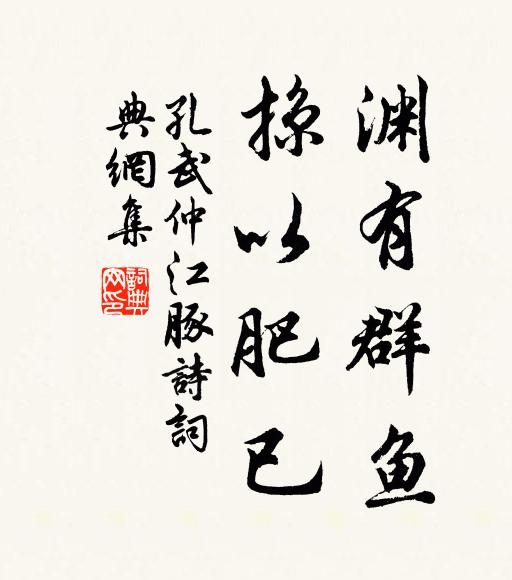 渊有群鱼
掠以肥已
孔武仲江豚詩詞
典網集
詞典
网印